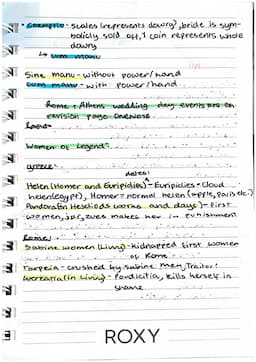 • Coemptio - scales (represents dowry), bride is sym-
bolically sold off, 1 coin represents whole
dowry
↳ cum manu
Sine manu - without power/hand
cum manu - with power/hand
Rome + Athens wedding day events are on
revision page oneness
Women of Legend
greece:
dates:
Helen (Homer and Euripidies) - Euripidies = cloud
helen (egypt), Homer = normal helen (apple, paris etc.)
Pandora (in Hesiods works and days) - First
women, jar, zues makes her in punishment
Rome:
Sabine women (Livy) - kidnapped first women
of Rome
Tarpeia - crushed by sabine men, Traitor!
Lucretia (in Livy) - Pudicitia, kills herself in
shame
ROXY